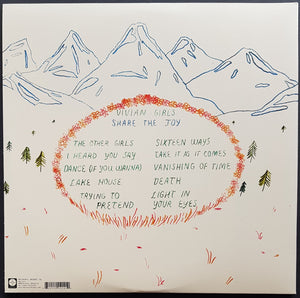 VIVIAN GIRLS
SHARE THE JOY
THE OTHER GIRLS
I HEARD YOU SAY
DANCE (IF YOU WANNA)
LAKE HOUSE
TRYING TO
PRETEND
SIXTEEN WAYS
TAKE IT AS IT COMES
VANISHING OF TIME
DEATH
LIGHT IN
YOUR EYES